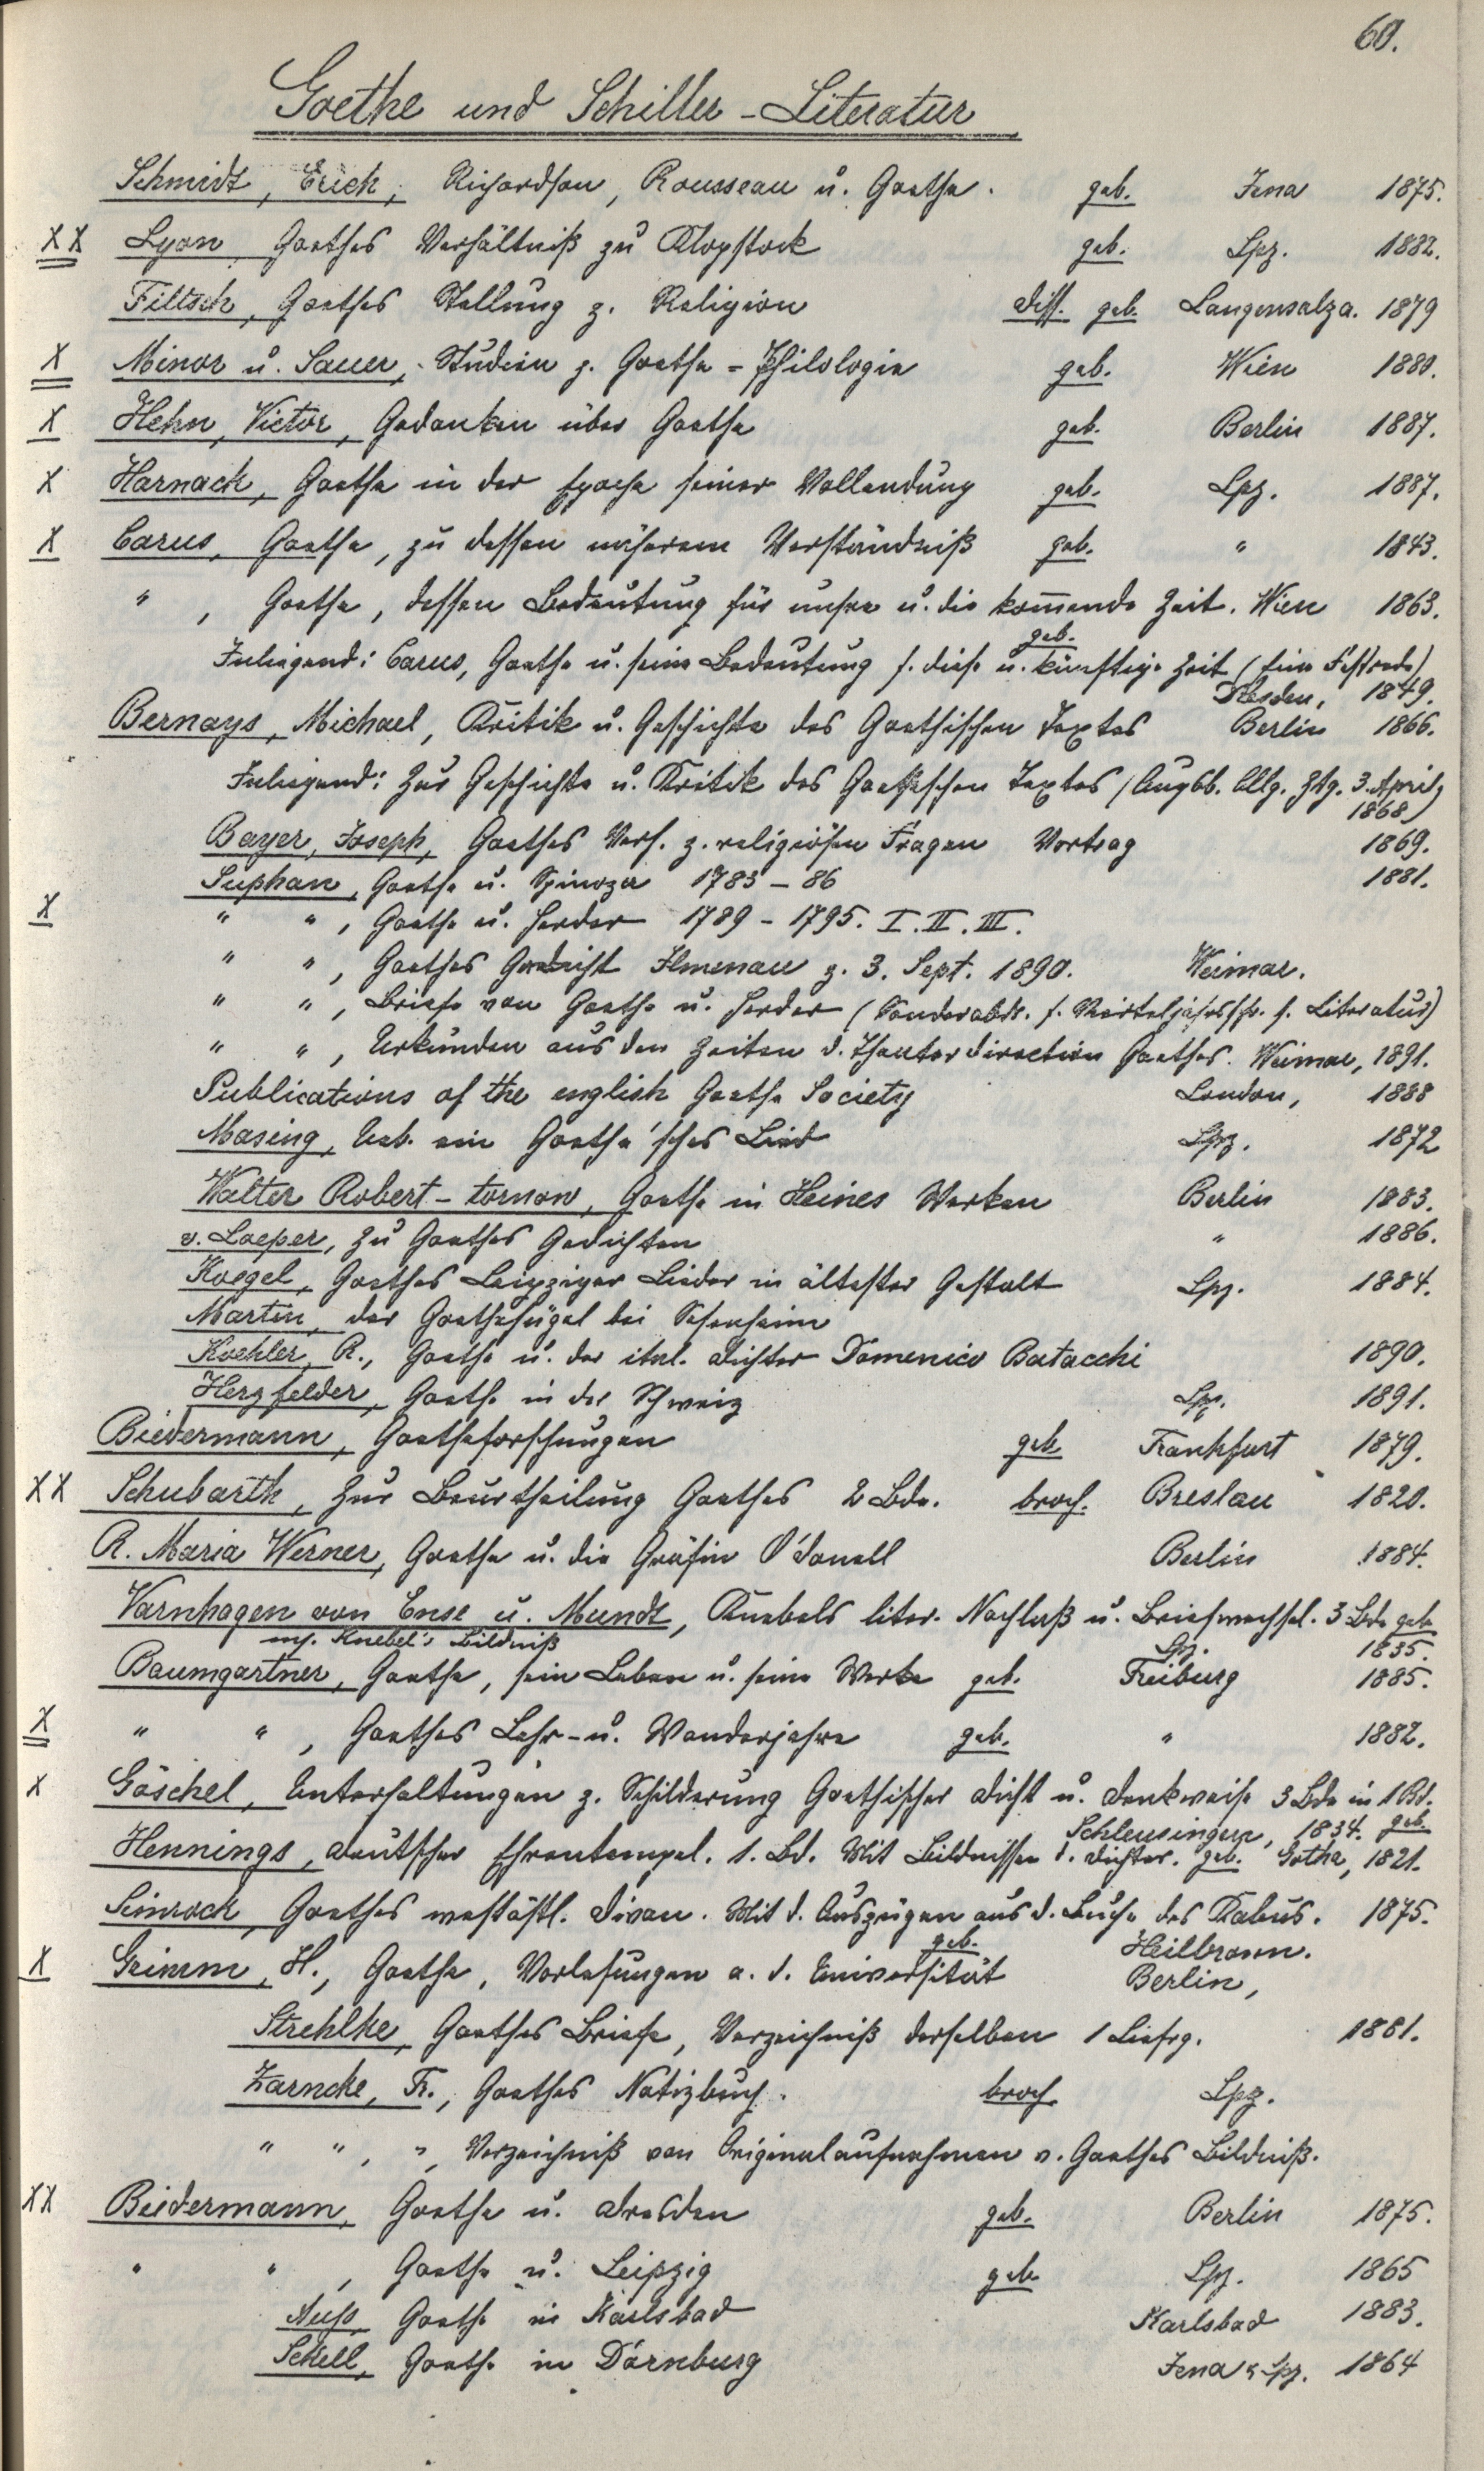 60.
Goethe und Schiller - Literatur
Schmidt, Erich, Richardson, Rousseau u. Goethe. geb. Jena 1875.
XX Lyon, Goethes Verhältniß zu Klopstock geb. Lpz. 1882.
Filtsch, Goethes Stellung z. Religion Diss. geb. Langensalza. 1879
X Minor u. Sauer, Studien z. Goethe-Philologie geb. Wien 1880.
X Hehn, Victor, Gedanken über Goethe geb. Berlin 1887.
X Harnack, Goethe in der Epoche seiner Vollendung geb. Lpz. 1887.
X Carus, Goethe, zu dessen näherem Verständniß geb. " 1843.
" , Goethe, dessen Bedeutung für unsre u. die kom̄ende Zeit. Wien 1863.
geb.
Inliegend: Carus, Goethe u. seine Bedeutung f. diese u. künftige Zeit (Eine Festrede)
Dresden, 1849.
Bernays, Michael, Kritik u. Geschichte des Goethischen Textes Berlin 1866.
Inliegend: Zur Geschichte u. Kritik des Goetheschen Textes (Augsb. Allg. Ztg. 3. April,
1868)
Bayer, Joseph, Goethes Verh. z. religiösen Fragen Vortrag 1869.
Suphan, Goethe u. Spinoza 1783 - 86 1881.
X " " , Goethe u. Herder 1789 - 1795. I. II. III.
" " , Goethes Gedicht Ilmenau z. 3. Sept. 1890. Weimar.
" " , Briefe von Goethe u. Herder (Sonderabdr. f. Vierteljahrsschr. f. Literatur)
" " , Urkunden aus den Zeiten d. Theaterdirection Goethes. Weimar, 1891.
Publications of the english Goethe Society London, 1888
Masing, Ueb. ein Goethe'sches Lied Lpz. 1872
Walter Robert-tornow, Goethe in Heines Werken Berlin 1883.
v. Loeper, Zu Goethes Gedichten " 1886.
Koegel, Goethes Leipziger Lieder in ältester Gestalt Lpz. 1884.
Martin, der Goethehügel bei Sesenheim
Koehler, R., Goethe u. der ital. Dichter Domenico Batacchi 1890.
Herzfelder, Goethe in der Schweiz Lpz. 1891.
Biedermann, Goetheforschungen geb. Frankfurt 1879.
XX Schubarth, Zur Beurtheilung Goethes 2 Bde. broch. Breslau 1820.
R. Maria Werner, Goethe u. die Gräfin O'donell Berlin 1884.
Varnhagen von Ense u. Mundt, Knebels liter. Nachlaß u. Briefwechsel. 3 Bde geb
m. Knebel's Bildniß Lpz. 1835.
Baumgartner, Goethe, sein Leben u. seine Werke geb. Freiburg 1885.
X " " , Goethes Lehr- u. Wanderjahre geb. " 1882.
X Göschel, Unterhaltungen z. Schilderung Goethischer Dicht u. Denkweise 3 Bde in 1 Bd.
Schleusingen, 1834. geb.
Hennings, Deutscher Ehrentempel. 1. Bd. Mit Bildnissen d. Dichter. geb. Gotha, 1821.
Simrock, Goethes westöstl. Divan. Mit d. Auszügen aus d. Buche des Kabus. 1875.
geb. Heilbronn.
X Grimm, H., Goethe, Vorlesungen a. d. Universität Berlin,
Strehlke, Goethes Briefe, Verzeichniß derselben 1 Liefrg. 1881.
Zarncke, Fr., Goethes Notizbuch. broch. Lpz.
" " , " , Verzeichniß von Originalaufnahmen v. Goethes Bildniß.
XX Biedermann, Goethe u. Dresden geb. Berlin 1875.
" " , Goethe u. Leipzig geb. Lpz. 1865
Goethe in Karlsbad Karlsbad 1883.
Schell, Goethe in Dornburg Jena & Lpz. 1864